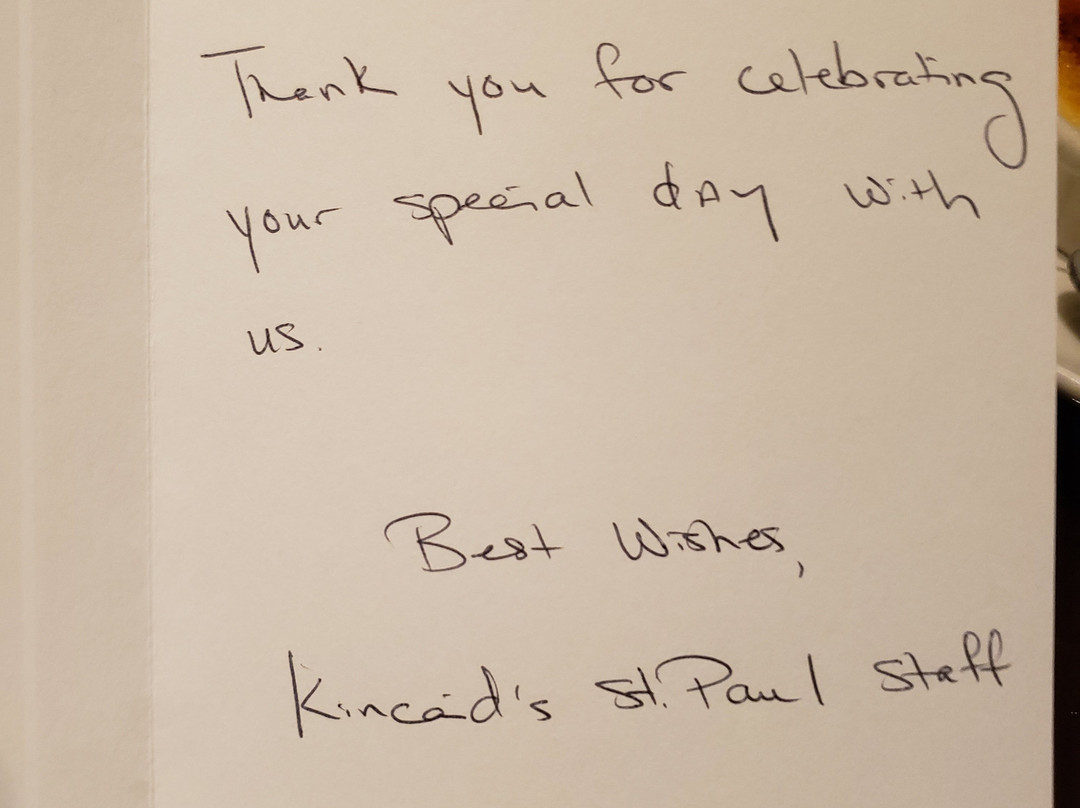 Thank you for celebrating
your special day with
us.
Best Wishes,
Kincaid's St. Paul Staff